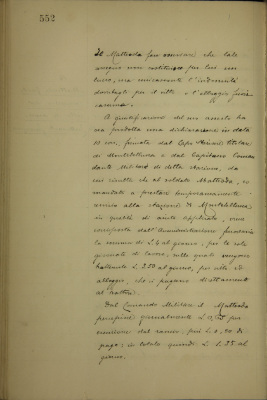 552
Il Mattioda fece osservare che tale
assegno non costituisce per lui un
lucro, ma unicamente l'indennità
dovutagli per il vitto e l'alloggio
A giustificazione del suo asserto ha
una dichiarazione in data
dal Capo
di Montebelluna e dal Capitano Coman
dante Militare di detta Stazione, da
cui risulta che al soldato Mattioda, co
mandato a prestare temporaneamente
servizio alla Stazione di Montebelluna
in qualità di aiuto applicato, viene
corrisposta dall'Amministrazione ferroviaria
la somma di L. 4 al giorno, per le sole
giornate di lavoro, sulle quali vengono
trattenute L. 2.50 al giorno, per vitto ed
alloggio, che si pagano direttamente
al
Dal Comando Militare il Mattioda
percepisce giornalmente L. per
del rancio, più L. di
paga; in totale quindi L. 1.25 al
giorno.